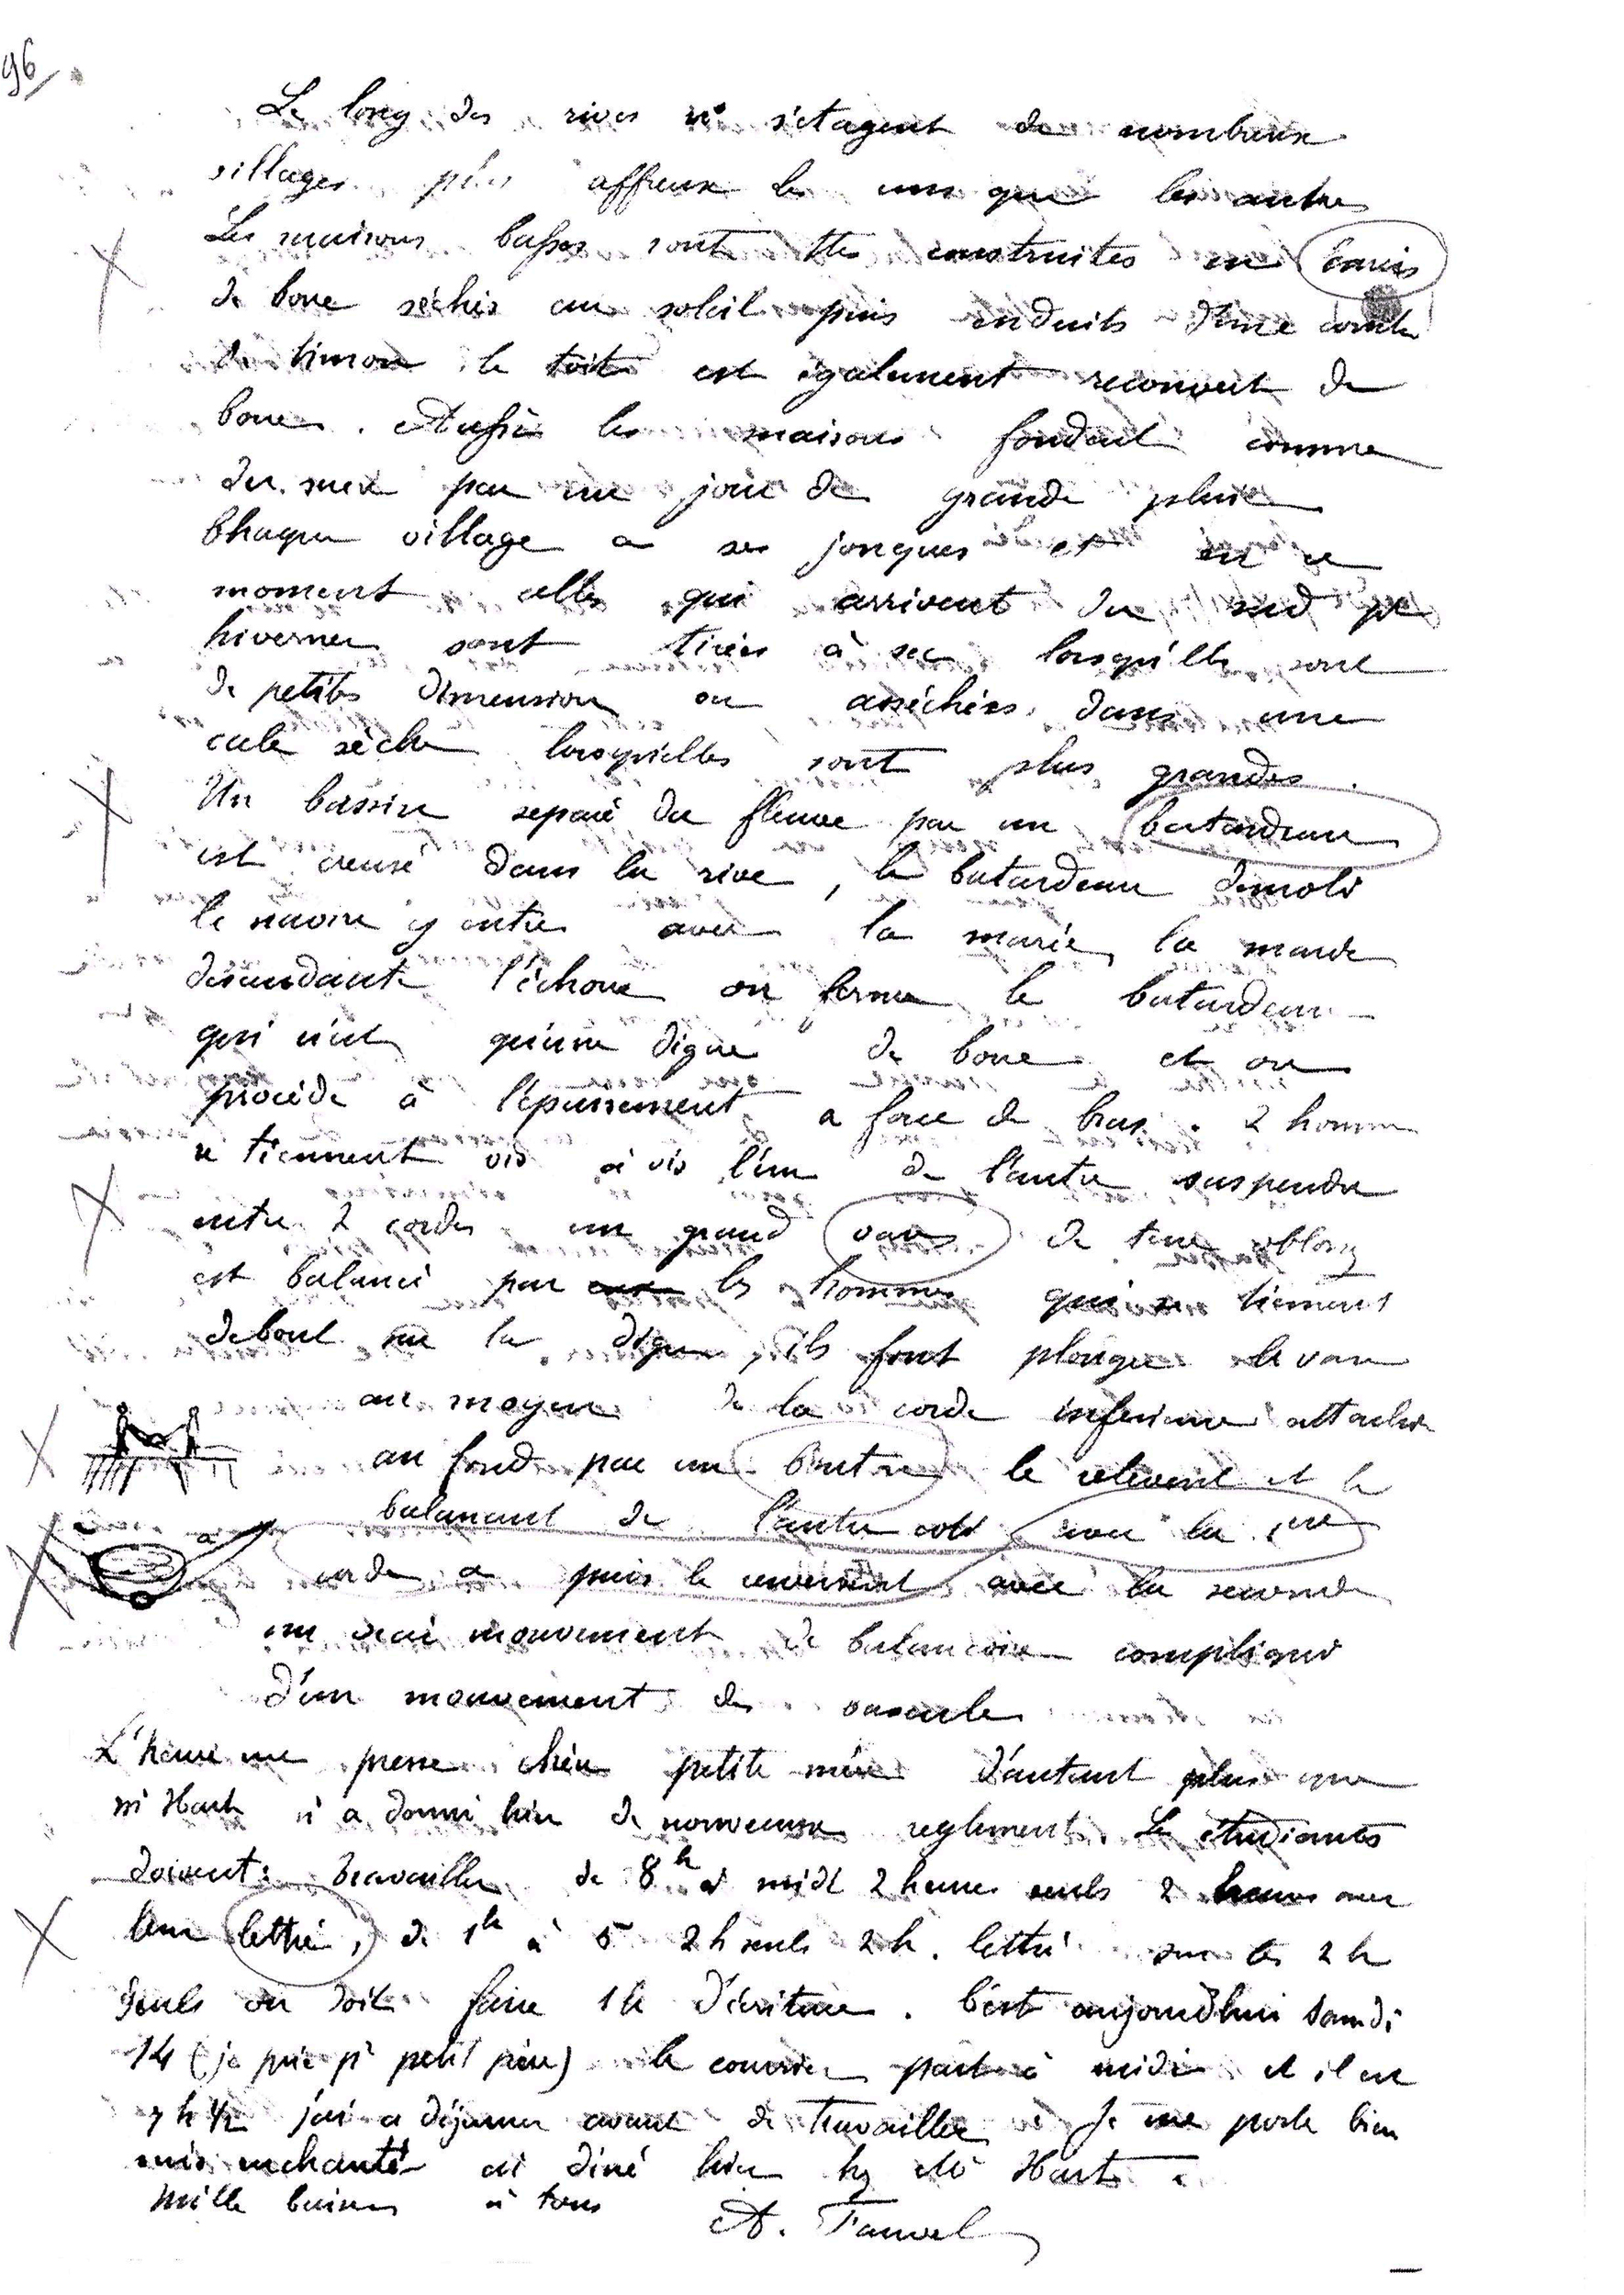 96/
Le long des rives s'etagent de nombreux
villages plus affreux les uns que les autres
Les maisons basses sont ttes construites en
de boue séchés au soleil puis enduits d'une couche
de limon le toit est également recouvert de
boue. Aussi les maisons fondent comme
du sucre par un jour de grande pluie
Chaque village a ses jonques et en ce
moment celles qui arrivent du sud pr
hiverner sont tirées à sec lorsqu'elles sont
de petites dimensions ou asséchées dans une
cale sèche lorsqu'elles sont plus grandes.
Un bassin separé du fleuve par un batardeau
est creusé dans la rive, le batardeau démoli
le navire y entre avec la marée, la marée
descendante l'échoue on ferme le batardeau
qui n'est qu'une digue de boue et on
procède à l'épuisement a force de bras. 2 hommes
se tiennent vis à vis l'un de l'autre suspendu
entre 2 cordes un grand vase de terre oblong
est balancé par les hommes qui se tiennent
debout sur la digue, ils font plonger le vase
au moyen de la corde inferieure attachée
au fond par un le relevent et le
balancent de l'autre coté avec la 1ere
corde a puis le renversent avec la seconde
un vrai mouvement de balancoire compliqué
d'un mouvement de bascule
a
L'heure me presse chère petite mère d'autant plus que
Mr Hart n a donné hier de nouveaux reglements. Les étudiants
doivent travailler de 8h à midi 2 heures seuls 2 heures avec
leur lettré, de 1h à 5 2h seuls 2h. lettré sur les 2h
seuls on doit faire 1h d'écriture. C'est aujourd'hui samedi
14 (je prie pr petit père) le courrier part à midi et il est
7h 1/2 j'ai a déjeuner avant de travailler Je me porte bien
suis enchanté ai diné hier Mr Hart
Mille baisers à tous
A. Fauvel